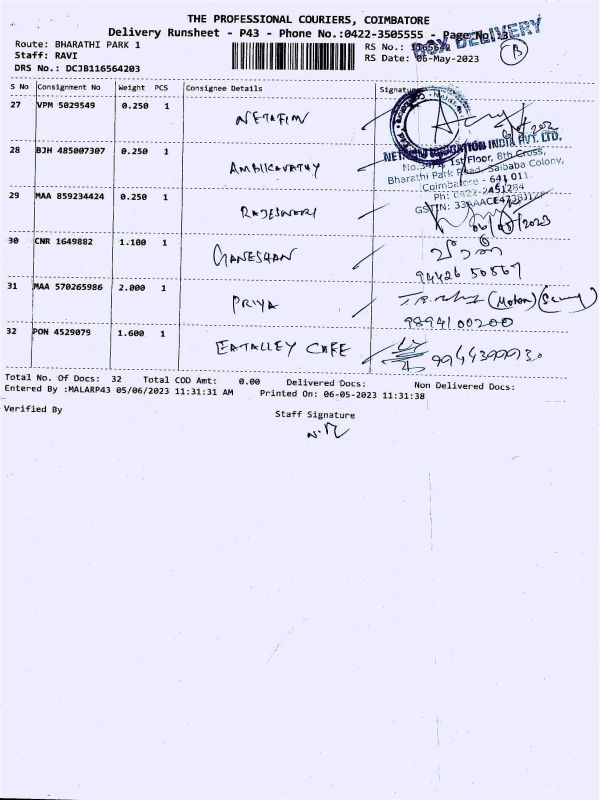 THE PROFESSIONAL COURIERS, COIMBATORE
Delivery Runsheet - P43 - Phone No.:0422-3505555 - Page No. 3
BOX DELIVERY
Route: BHARATHI PARK 1
RS No.: 1165642
B
Staff: RAVI
RS Date: 06-May-2023
DRS No.: DCJB116564203
S No Consignment No Weight PCS Consignee Details Signature
27 VPM 5029549 0.250 1 NETAFIM
28 BJH 485007307 0.250 1 AMBIKAVATHY
NETAFIM IRRIGATION INDIA PVT. LTD.
1st Floor, 8th Cross,
Bharathi Park Road, Saibaba Colony,
Coimbatore - 641 011.
Ph: 0422-2451284
29 MAA 859234424 0.250 1 RAJESWARI
GSTIN:
06/05/2023
30 CNR 1649882 1.100 1 GANESHAN
94426 50567
31 MAA 570265986 2.000 1 PRIYA
(Mother)
9894100200
32 PON 4529079 1.600 1 EATALLEY CAFE
Total No. Of Docs: 32 Total COD Amt: 0.00 Delivered Docs: Non Delivered Docs:
Entered By :MALARP43 05/06/2023 11:31:31 AM Printed On: 06-05-2023 11:31:38
Verified By
Staff Signature